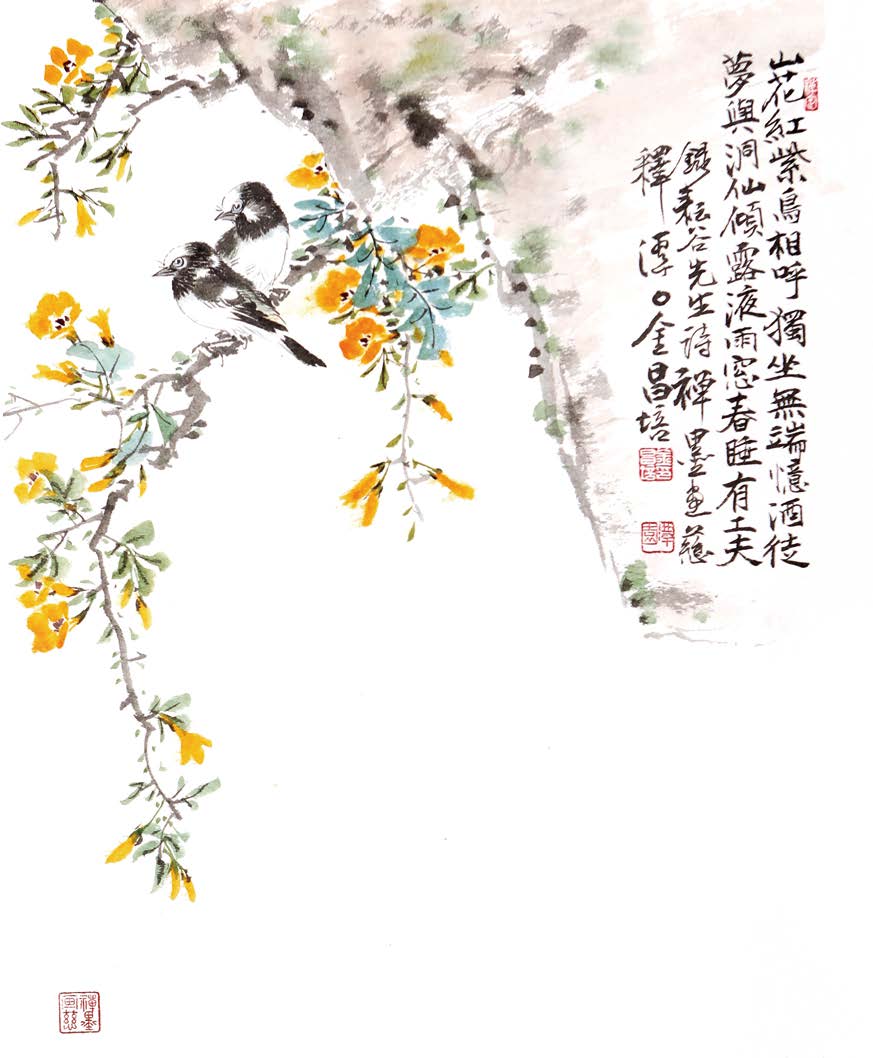 山花紅紫鳥相呼獨坐無端憶酒徒
夢與洞仙傾露液雨窓春睡有工夫
錄耘谷先生詩禪墨画慈
釋潭〇金昌培
禪墨
画慈